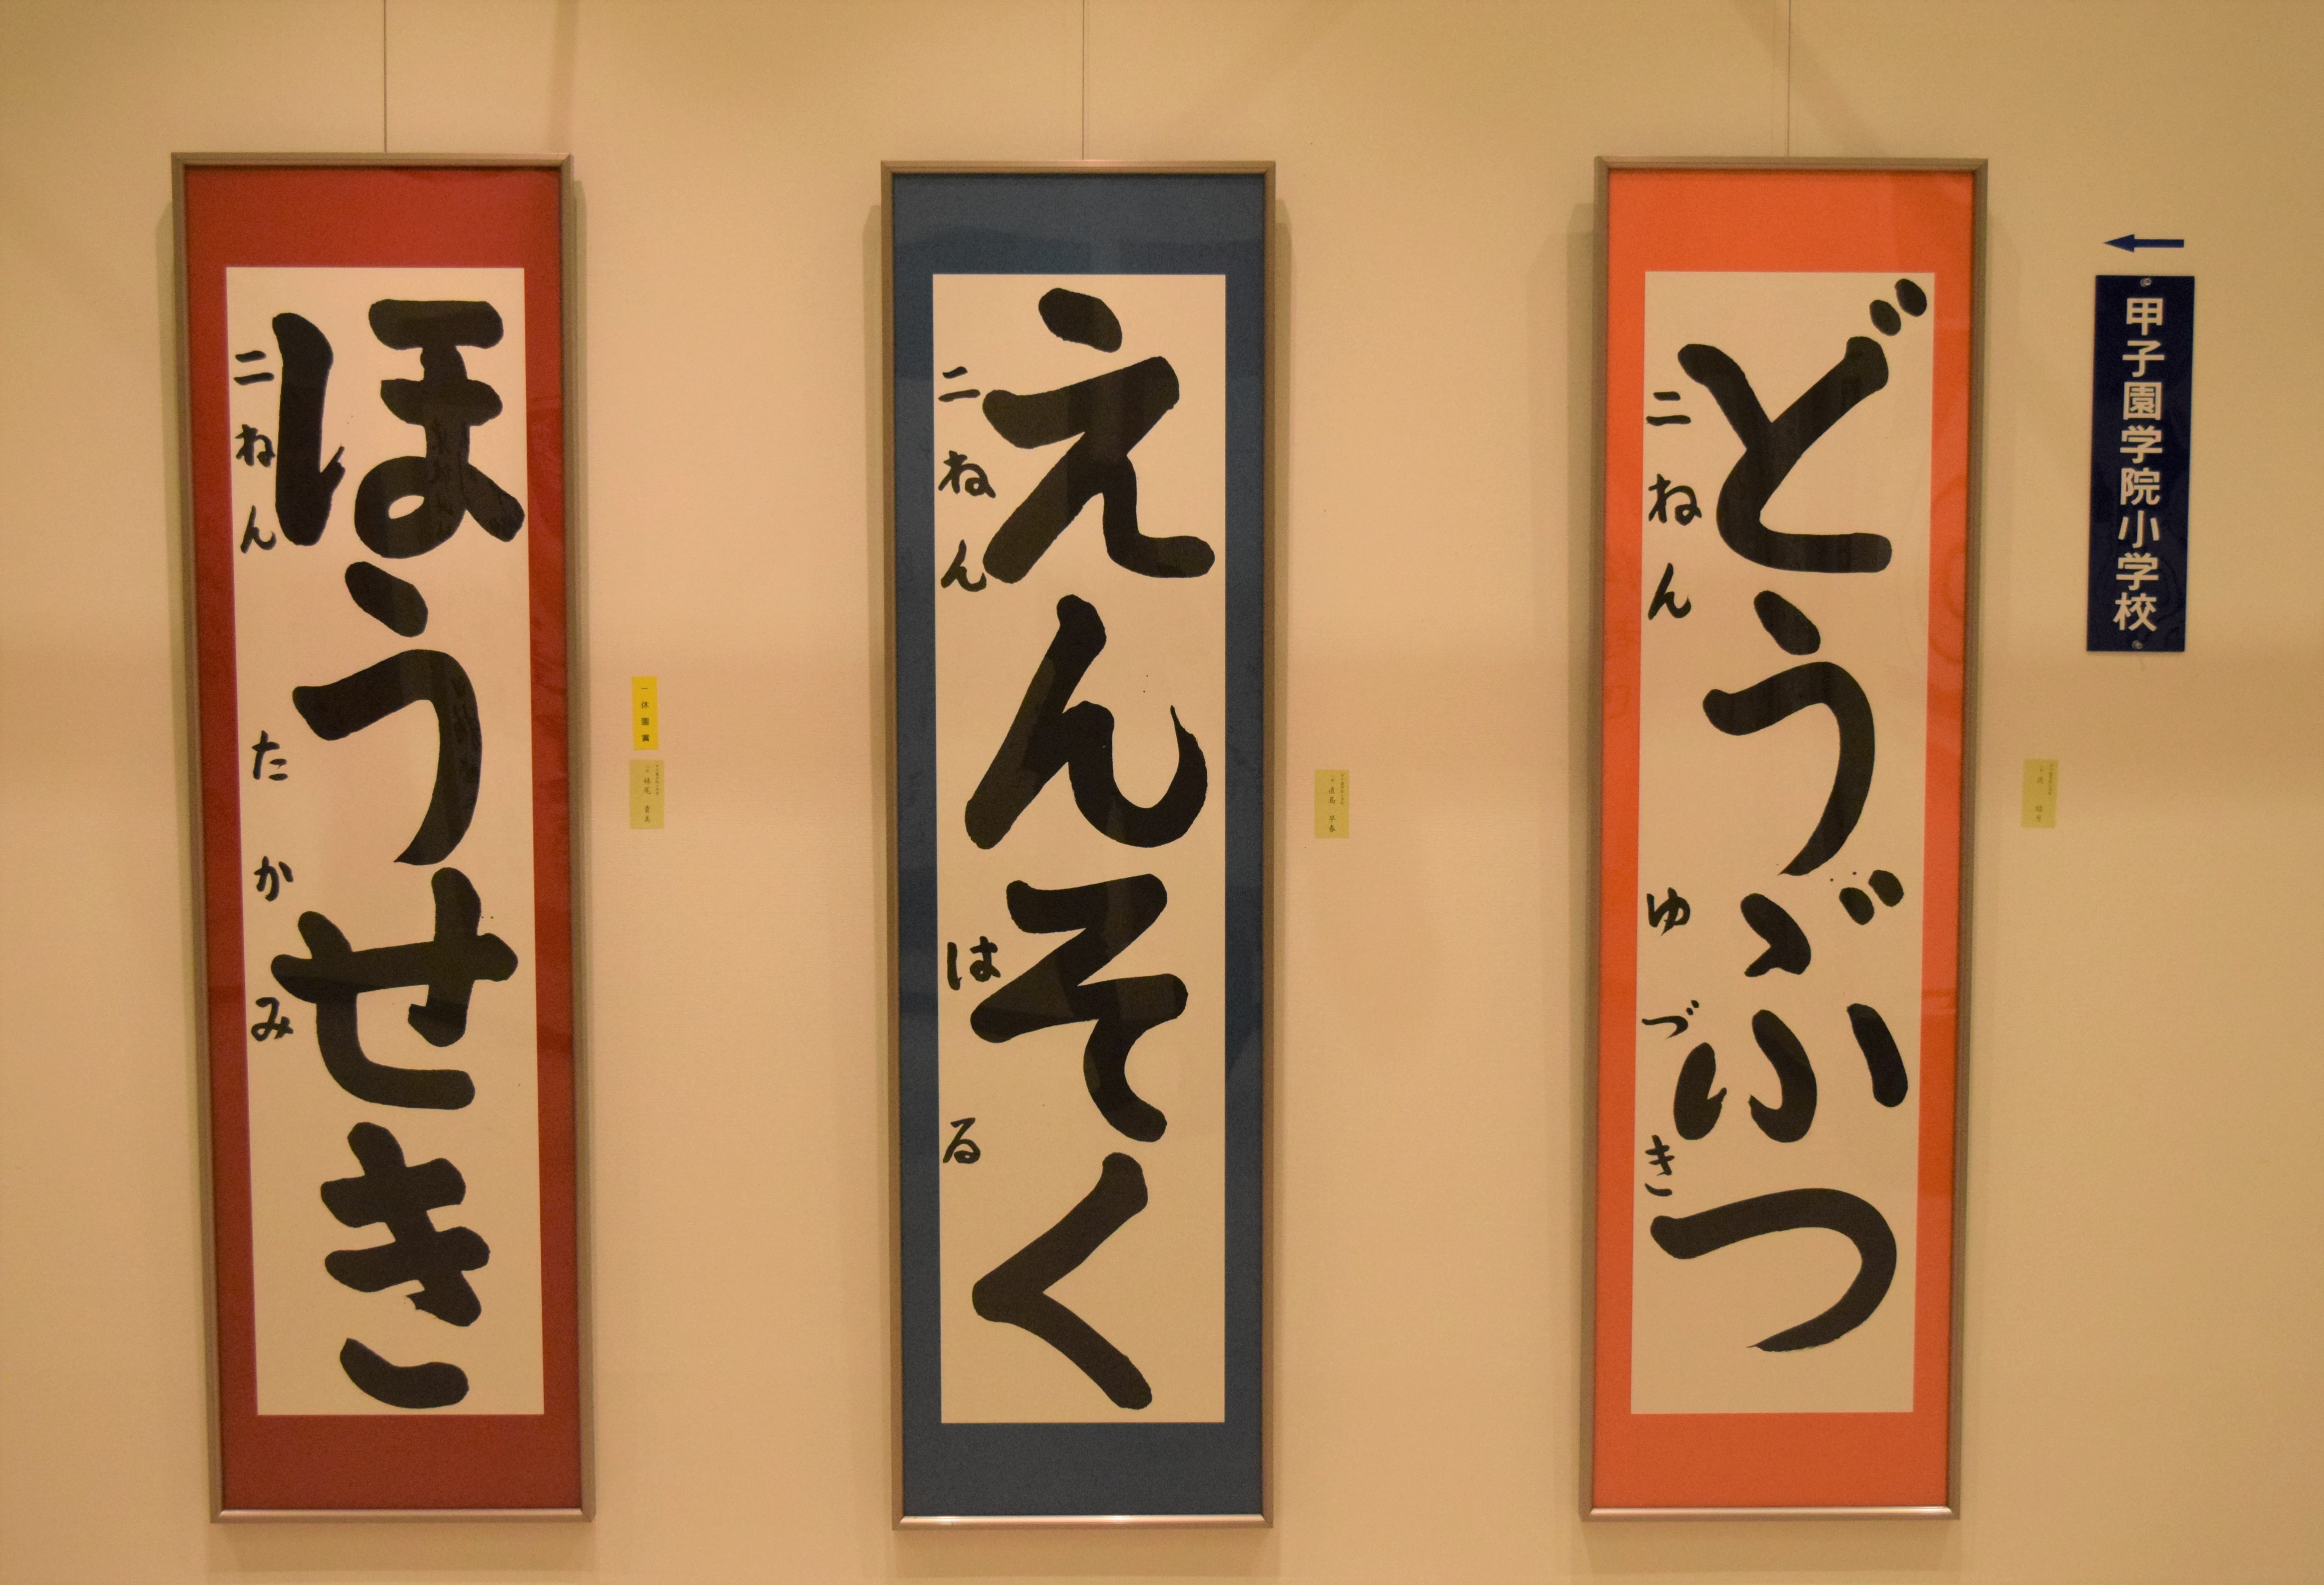 甲子園学院小学校
どうぶつ
二ねん ゆづき
えんそく
二ねん はる
ほうせき
二ねん たかみ
一休園賞